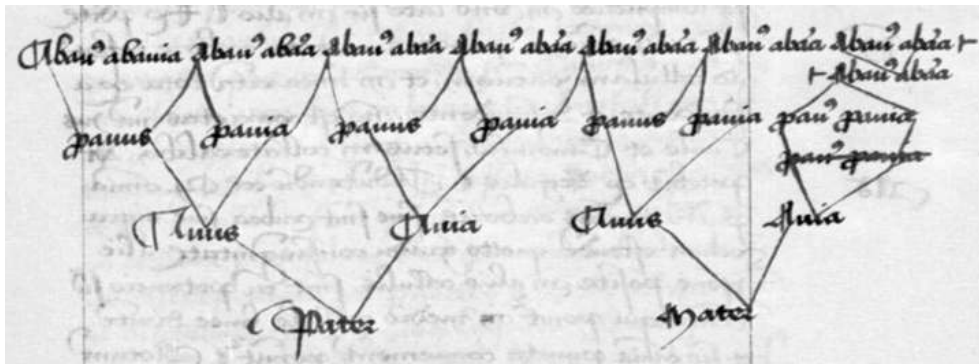 Abau⁹ abauia Abau⁹ abãa Abau⁹ abãa Abau⁹ abãa Abau⁹ abãa Abau⁹ abãa Abau⁹ abãa
Abau⁹ abãa
pauus pauia pauus pauia pauus pauia pau⁹ pauia
pau⁹ pauia
Auus Auia Auus Auia
Pater Mater